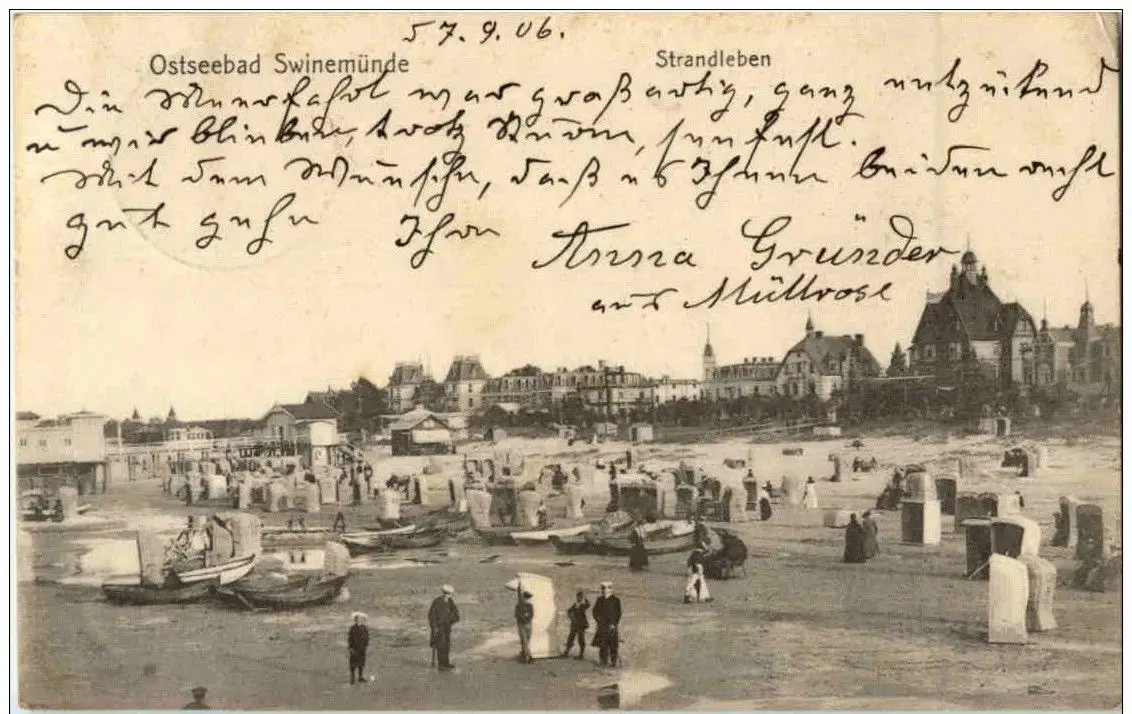 57.9.06.
Ostseebad Swinemünde Strandleben
Die Meerfahrt war großartig, ganz entzückend
u wir blieben, trotz Sturm, seefest.
Mit dem Wunsche, daß es Ihnen beiden recht
gut gehe Ihre Anna Gründer
aus Müllrose